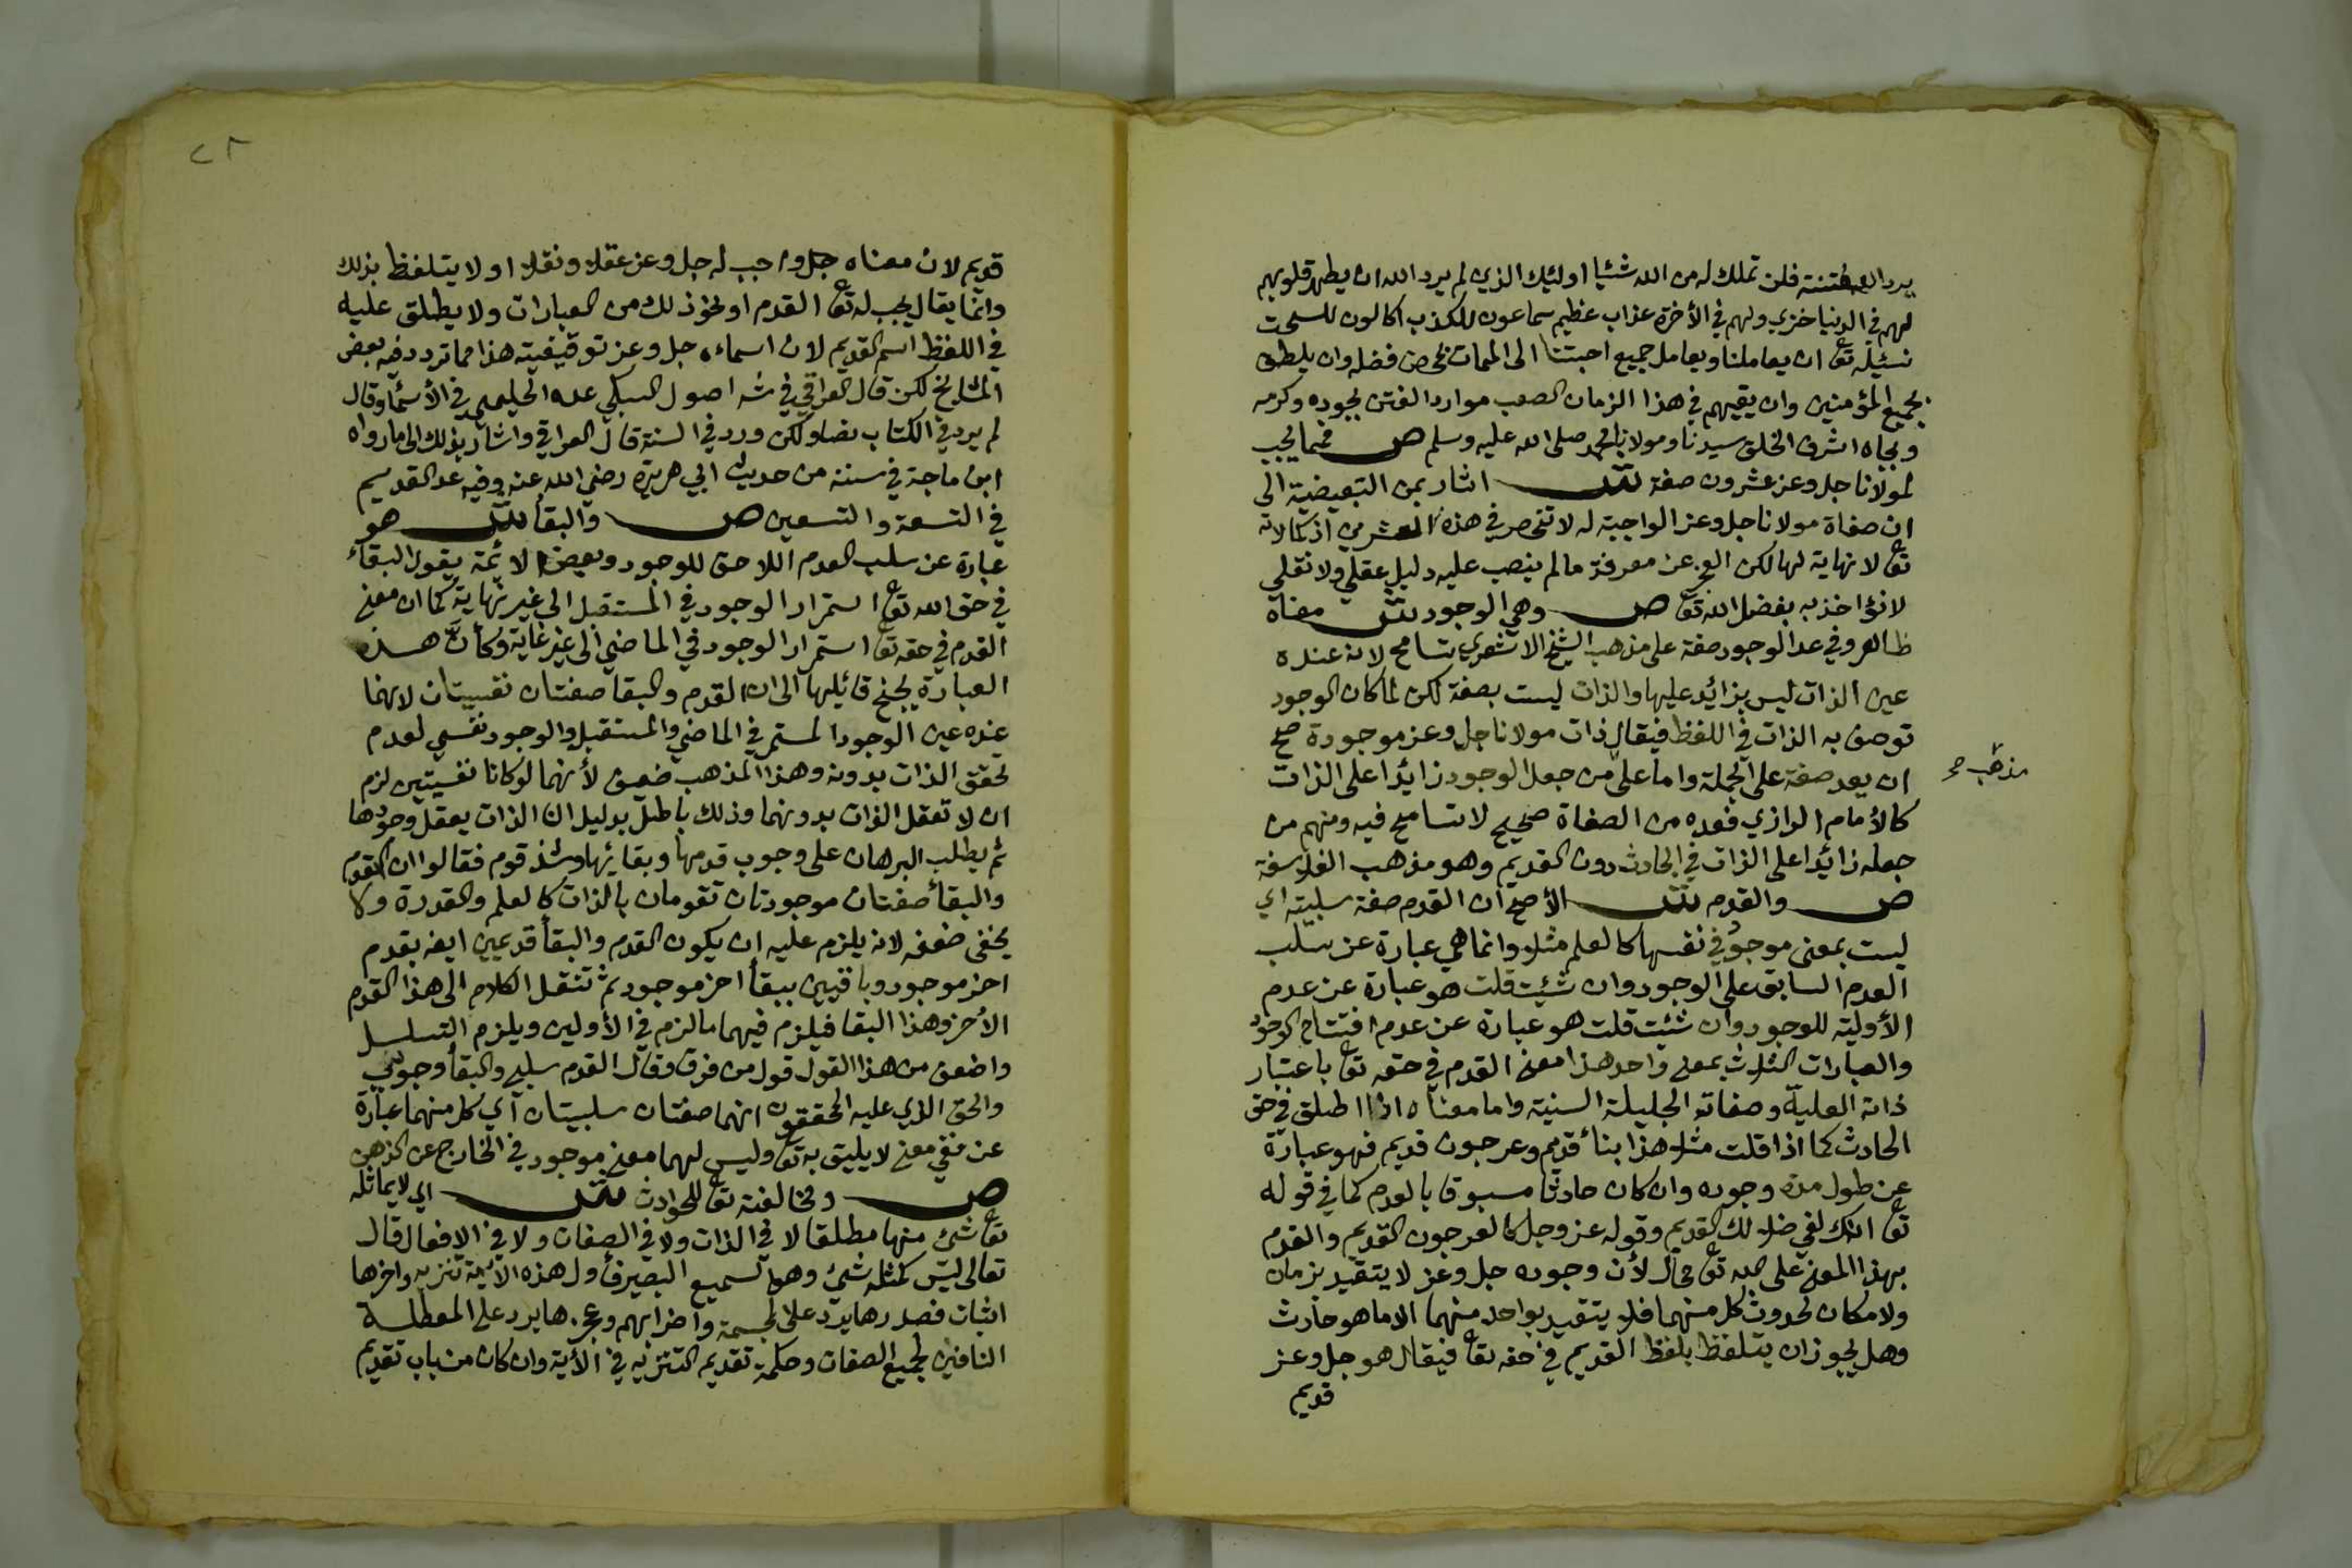 يرد الله فتنته فلن تملك له من الله شئيا اولئيك الذين لم يرد الله ان يطهر قلوبهم
لهم في الدنيا خزي ولهم في الأخرة عذاب عظيم سماعون للكذب اكالون للسحت
نسئيله تع ان يعاملنا ويعامل جميع احبتنا الى الممات بمحض فضله وان يلطف
بجميع المؤمنين وان يقيهم في هذا الزمان الصعب موارد الفتن بجوده وكرمه
وبجاه اشرف الخلق سيدنا ومولانا محمد صلى الله عليه وسلم ص فمما يجب
لمولانا جل وعز عشرون صفة ش اشار بمن التبعيضية الى
ان صفاة مولانا جل وعز الواجبة له لا تنحصر في هذه العشرين اذ كمالاته
تع لا نهاية لها لكن العجز عن معرفة ما لم ينصب عليه دليل عقلي ولا نقلي
لا نؤاخذ به بفضل الله تع ص وهي الوجود ش معناه
ظاهر وفي عد الوجود صفة على مذهب الشيخ الاشعري تسامح لانه عنده
عين الذات ليس بزائيد عليها والذات ليست بصفة لكن لما كان الوجود
توصف به الذات في اللفظ فيقال ذات مولانا جل وعز موجودة صح
ان يعد صفة على الجملة واما على من جعل الوجود زائيدا على الذات
مذهب صح
كالأمام الرازي فعده من الصفاة صحيح لا تسامح فيه ومنهم من
جعله زائيدا على الذات في الحادث دون القديم وهو مذهب الفلاسفة
ص والقدم ش الأصح ان القدم صفة سلبية اي
ليست بمعنى موجود في نفسها كالعلم مثلا وانما هي عبارة عن سلب
العدم السابق على الوجود وان شئيت قلت هو عبارة عن عدم
الأولية للوجود وان شئيت قلت هو عبارة عن عدم افتتاح الوجود
والعبارات الثلاث بمعنى واحد هذا معنى القدم في حقه تع باعتبار
ذاته العلية وصفاته الجليلة السنية واما معناه اذا اطلق في حق
الحادث كما اذا قلت مثلا هذا بناء قديم وعرجون قديم فهو عبارة
عن طول مدة وجوده وان كان حادثا مسبوقا بالعدم كما في قوله
تع انك لفي ضلالك القديم وقوله عز وجل كالعرجون القديم والقدم
بهذا المعنى على الله تع محال لأن وجوده جل وعز لا يتقيد بزمان
ولا مكان لحدوث كل منهما فلا يتقيد بواحد منهما الا ما هو حادث
وهل يجوز ان يتلفظ بلفظ القديم في حقه تع فيقال هو جل وعز
قديم
٢٨
قديم لان معناه جل واجب له جل وعز عقلا ونقلا او لا يتلفظ بذلك
وانما يقال يجب له تع القدم او نحو ذلك من العبارات ولا يطلق عليه
في اللفظ اسم القديم لان اسماءه جل وعز توقيفية هذا مما تردد فيه بعض
المشايخ لكن قال العراقي في شه اصول السبكي عده الحليمي في الأسماء وقال
لم يرد في الكتاب نصا ولكن ورد في السنة قال العراقي واشار بذلك الى ما رواه
ابن ماجة في سننه من حديث ابي هريرة رضي الله عنه وفيه عد القديم
في التسعة والتسعين ص والبقأ ش هو
عبارة عن سلب العدم اللاحق للوجود وبعض الائمة يقول البقاء
في حق الله تع استمرار الوجود في المستقبل الى غير نهاية كما ان معنى
القدم في حقه تع استمرار الوجود في الماضي الى غير غاية وكأنّ هذه
العبارة يجنح قائيلها الى ان القدم والبقا صفتان نفسيتان لانهما
عنده عين الوجود المستمر في الماضي والمستقبل والوجود نفسي لعدم
تحقق الذات بدونه وهذا المذهب ضعيف لأنهما لو كانا نفسيتين لزم
ان لا تعقل الذات بدونهما وذلك باطل بدليل ان الذات يعقل وجودها
ثم يطلب البرهان على وجوب قدمها وبقائها وشذ قوم فقالوا ان القدم
والبقأ صفتان موجودتان تقومان بالذات كالعلم والقدرة ولا
يخفى ضعفه لانه يلزم عليه ان يكون القدم والبقأ قديمين ايضه بقدم
اخر موجود وباقيين ببقأ اخر موجود ثم تنقل الكلام الى هذا القدم
الأخر وهذا البقا فيلزم فيهما ما لزم في الأولين ويلزم التسلسل
واضعف من هذا القول قول من فرق وقال القدم سلبي والبقأ وجودي
والحق الذي عليه المحققون انهما صفتان سلبيتان اي كل منهما عبارة
عن نفي معنى لا يليق به تع وليس لهما معنى موجود في الخارج عن الذهن
ص ومخالفته تع للحوادث ش اي لا يماثله
تع شئ منها مطلقا لا في الذات ولا في الصفات ولا في الافعال قال
تعالى ليس كمثله شئ وهو السميع البصير فأول هذه الآية تنزيه واخرها
اثبات فصدرها يرد على المجسمة واضرابهم وعجزها يرد على المعطلة
النافين لجميع الصفات وحكمة تقديم التنزيه في الأية وان كان من باب تقديم